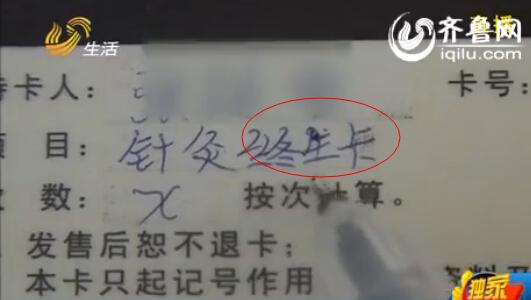 生活
齐鲁网
iqilu.com
直播
持卡人：
卡号：
项目：针灸终生卡
次数：x 按次计算。
发售后恕不退卡；
本卡只起记号作用
独家